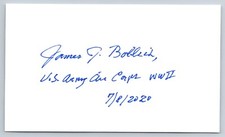 James J. Bollich,
U.S. Army Air Corps WWII
7/8/2020